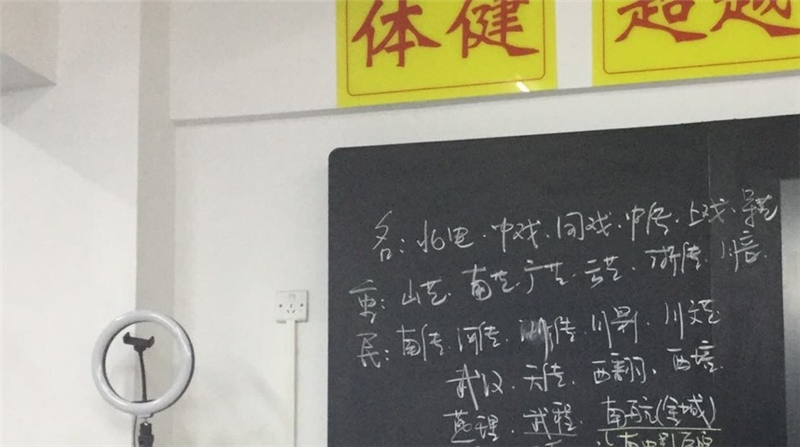 体健 超越
名:北电·中戏·同戏·中传·上戏·军艺
重:山艺·南艺·广艺·云艺·浙传·川音
民:南传·河传·川影·川文艺
武汉·天传·西翻·西培
燕理·武程·南航(金城)